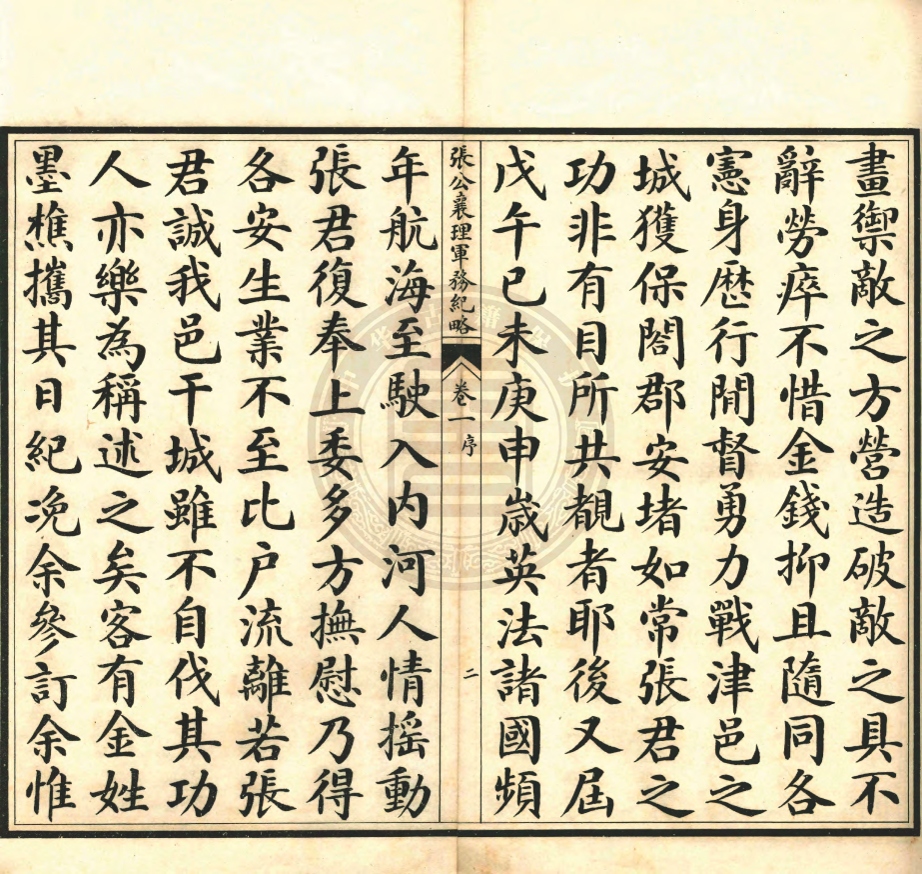 畫禦敵之方營造破敵之具不
辭勞瘁不惜金錢抑且隨同各
憲身歷行間督勇力戰津邑之
城獲保閤郡安堵如常張君之
功非有目所共覩者耶後又屆
戊午已未庚申歲英法諸國頻
張公襄理軍務紀略 卷一 序 二
年航海至駛入内河人情搖動
張君復奉上委多方撫慰乃得
各安生業不至比户流離若張
君誠我邑干城雖不自伐其功
人亦樂為稱述之矣客有金姓
墨樵攜其日紀浼余參訂余惟